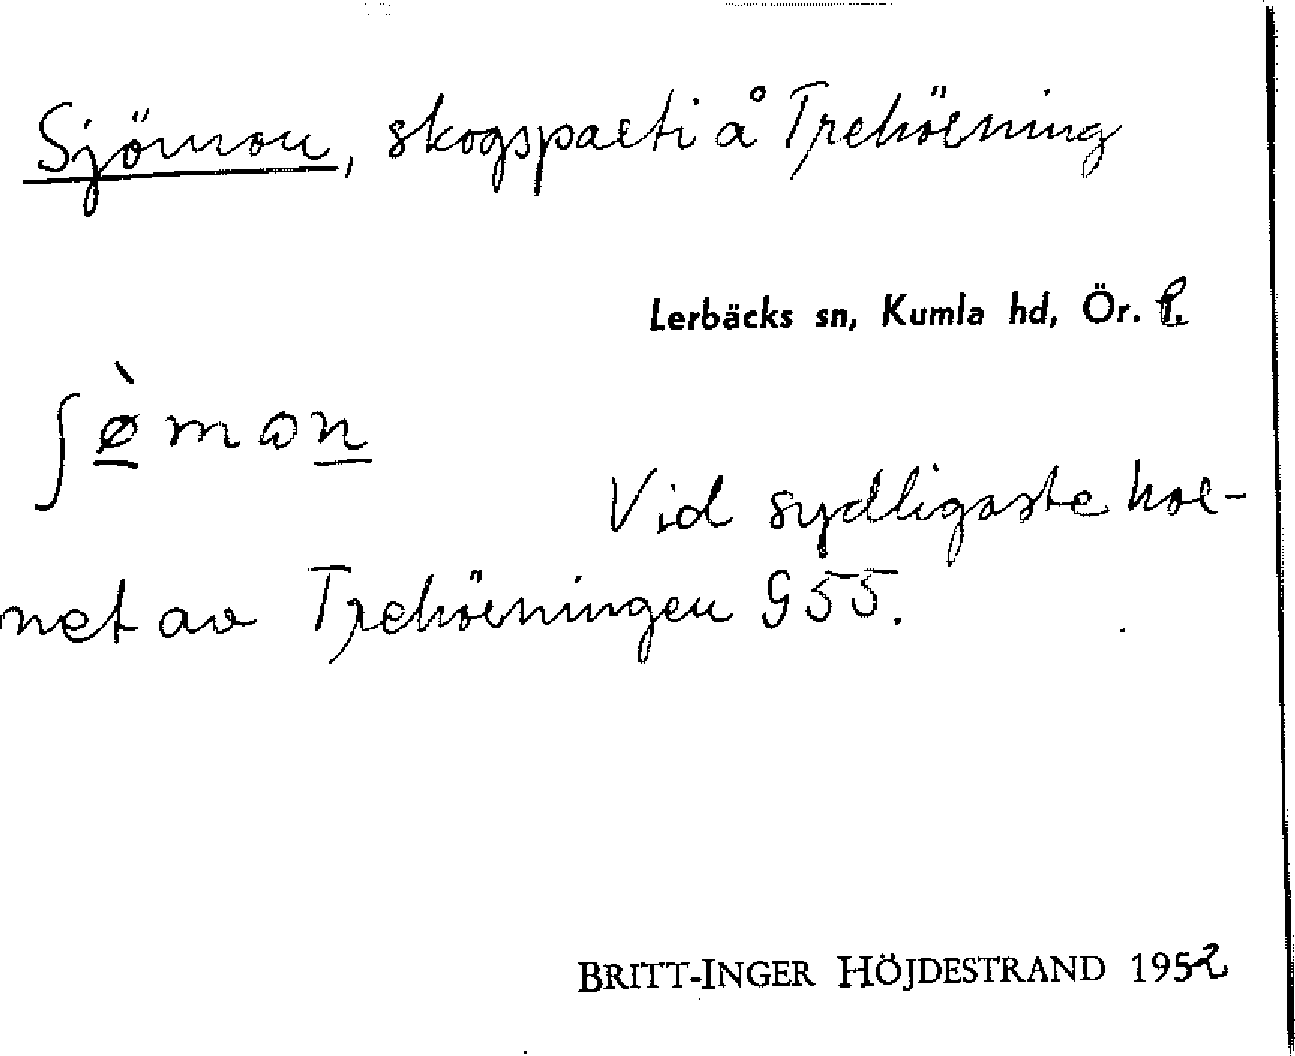 Sjömon, skogsparti å Trehörning
Lerbäcks sn, Kumla hd, Ör. l.
ʃø̀mon
Vid sydligaste hör-
net av Trehörningen G55.
BRITT-INGER HÖJDESTRAND 1952